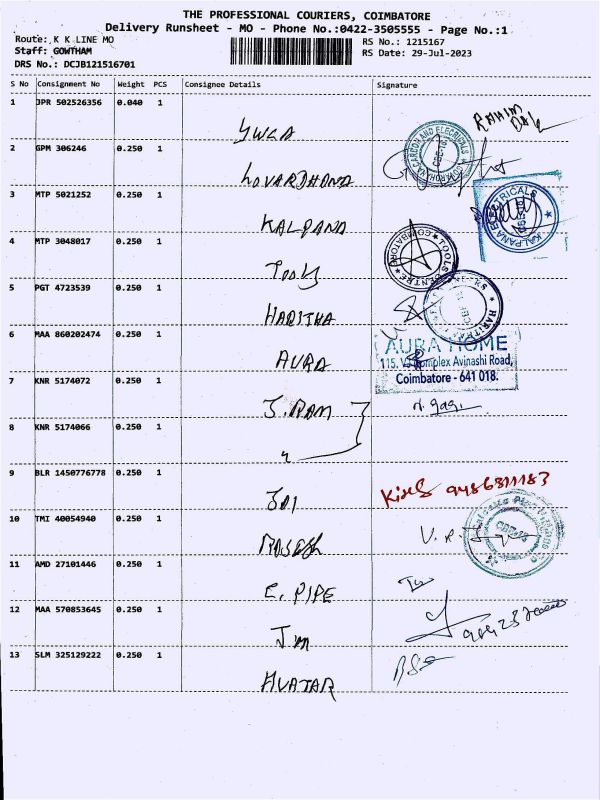 THE PROFESSIONAL COURIERS, COIMBATORE
Delivery Runsheet - MO - Phone No.:0422-3505555 - Page No.:1
Route: K K LINE MO
RS No.: 1215167
Staff: GOWTHAM
RS Date: 29-Jul-2023
DRS No.: DCJB121516701
S No Consignment No Weight PCS Consignee Details Signature
1 JPR 502526356 0.040 1
YWCA
RAHIM
2 GPM 306246 0.250 1
GOVARDHANA
3 MTP 5021252 0.250 1
KALPANA
KALPANA ELECTRICALS
4 MTP 3048017 0.250 1
TOOLS
TOOLS CENTRE COIMBATORE
5 PGT 4723539 0.250 1
HARITHA
6 MAA 860202474 0.250 1
AURA
AURA HOME
115, Complex Avinashi Road,
Coimbatore - 641 018.
7 KNR 5174072 0.250 1
J. RAM
8 KNR 5174066 0.250 1
"
9 BLR 1450776778 0.250 1
JAI
10 TMI 40054940 0.250 1
11 AMD 27101446 0.250 1
E. PIPE
12 MAA 570853645 0.250 1
Jm
13 SLM 325129222 0.250 1
AVATAR